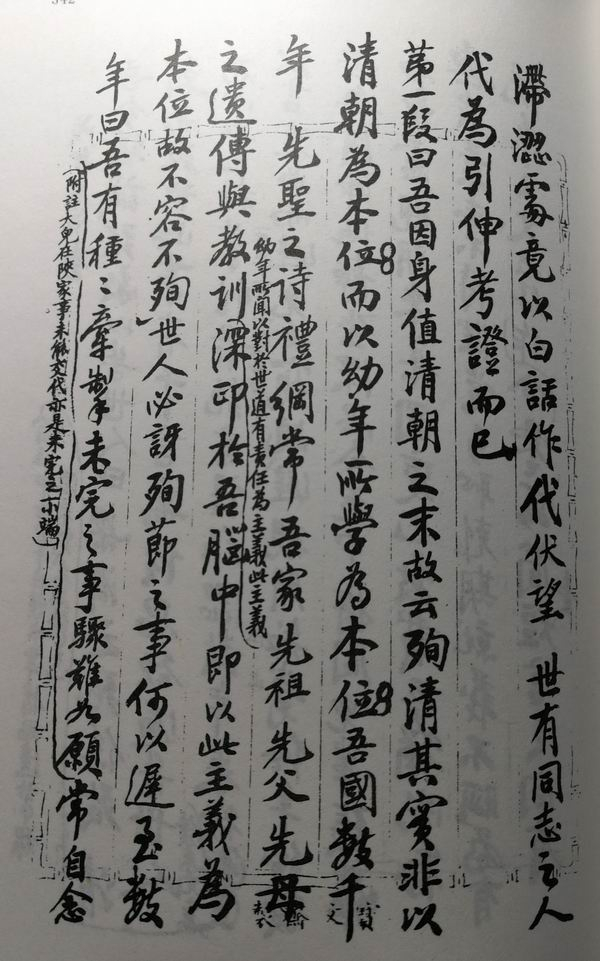 342
滯澀處竟以白話作代伏望 世有同志之人
代為引伸考證而已
第一段曰吾因身值清朝之末故云殉清其實非以
清朝為本位而以幼年所學為本位吾國數千
年 先聖之詩禮綱常吾家先祖先父先母
幼年所聞以對於世道有責任為主義此主義
之遺傳與教訓深印於吾腦中即以此主義為
本位故不容不殉 世人必訝殉節之事何以遲至數
年曰吾有種〻牽掣未完之事驟難如願常自念
(附註大兒在陝家事未能交代亦是未完之一小端)
寶文
齋製